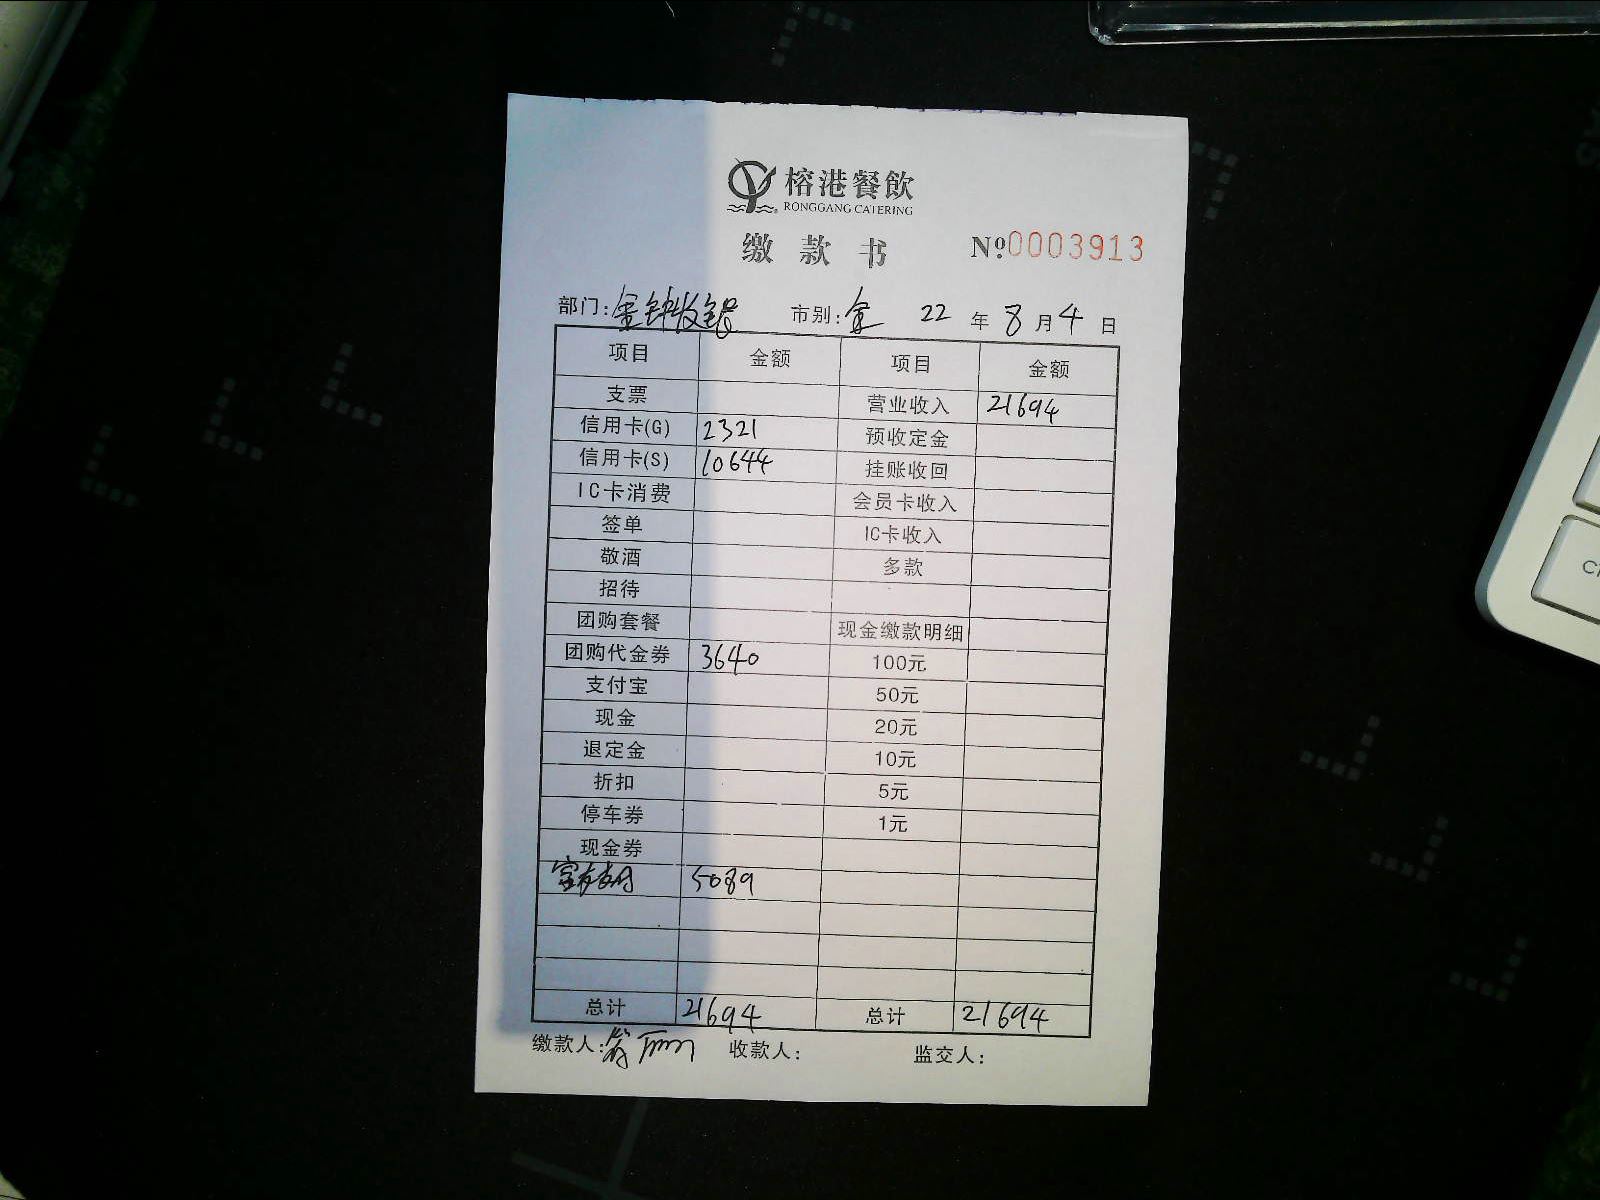 榕港餐飲
RONGGANG CATERING
缴款书 №0003913
部门:金钟收银 市别:全 22年8月4日
项目 金额 项目 金额
支票 营业收入 21694
信用卡(G) 2321 预收定金
信用卡(S) 10644 挂账收回
IC卡消费 会员卡收入
签单 IC卡收入
敬酒 多款
招待
团购套餐 现金缴款明细
团购代金券 3640 100元
支付宝 50元
现金 20元
退定金 10元
折扣 5元
停车券 1元
现金券
5089
总计 21694 总计 21694
缴款人: 收款人: 监交人: